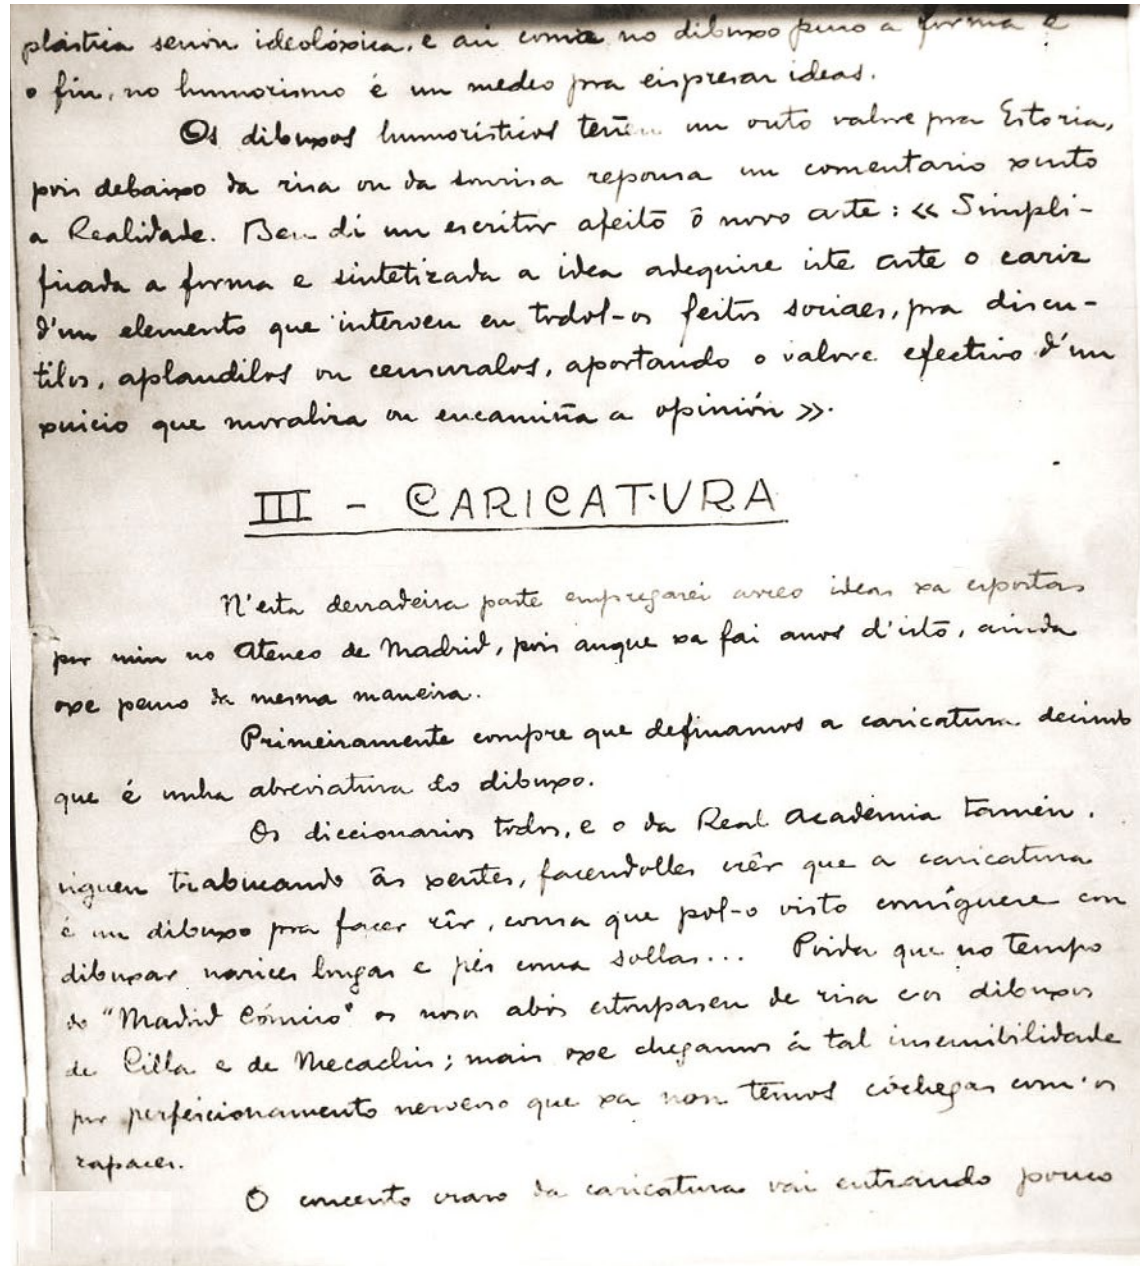 plástica senón ideolóxica, e así coma no dibuxo puro a forma é
o fin, no humorismo é un medeo pra eispresar ideas.
Os dibuxos humorísticos teñen un outo valore pra Estoria,
pois debaixo da risa ou da sonrisa repousa un comentario xusto
a Realidade. Ben di un escritor afeito ô novo arte: «Simpli-
ficada a forma e sintetizada a idea adequire iste arte o cariz
d'un elemento que interven en todol-os feitos sociaes, pra discu-
tilos, aplaudilos ou censuralos, aportando o valore efectivo d'un
xuicio que moraliza ou encamiña a opinión».
III - CARICATURA
N'esta derradeira parte empregarei arreo ideas xa espostas
por min no Ateneo de Madrid, pois anque xa fai anos d'isto, ainda
oxe penso da mesma maneira.
Primeiramente compre que definamos a caricatura decindo
que é unha abreviatura do dibuxo.
Os diccionarios todos, e o da Real Academia tamén,
siguen trabucando âs xentes, facendolles crêr que a caricatura
é un dibuxo pra facer rir, cousa que pol-o visto consíguese con
dibuxar narices longas e pés coma sollas... Poida que no tempo
do "Madrid Cómico" os nosos abós estoupasen de risa c'os dibuxos
de Cilla e de Mecachis; mais oxe chegamos á tal insensibilidade
por perfeicionamento nervoso que xa non temos cóchegas com'os
rapaces.
O concento craro da caricatura vai entrando pouco